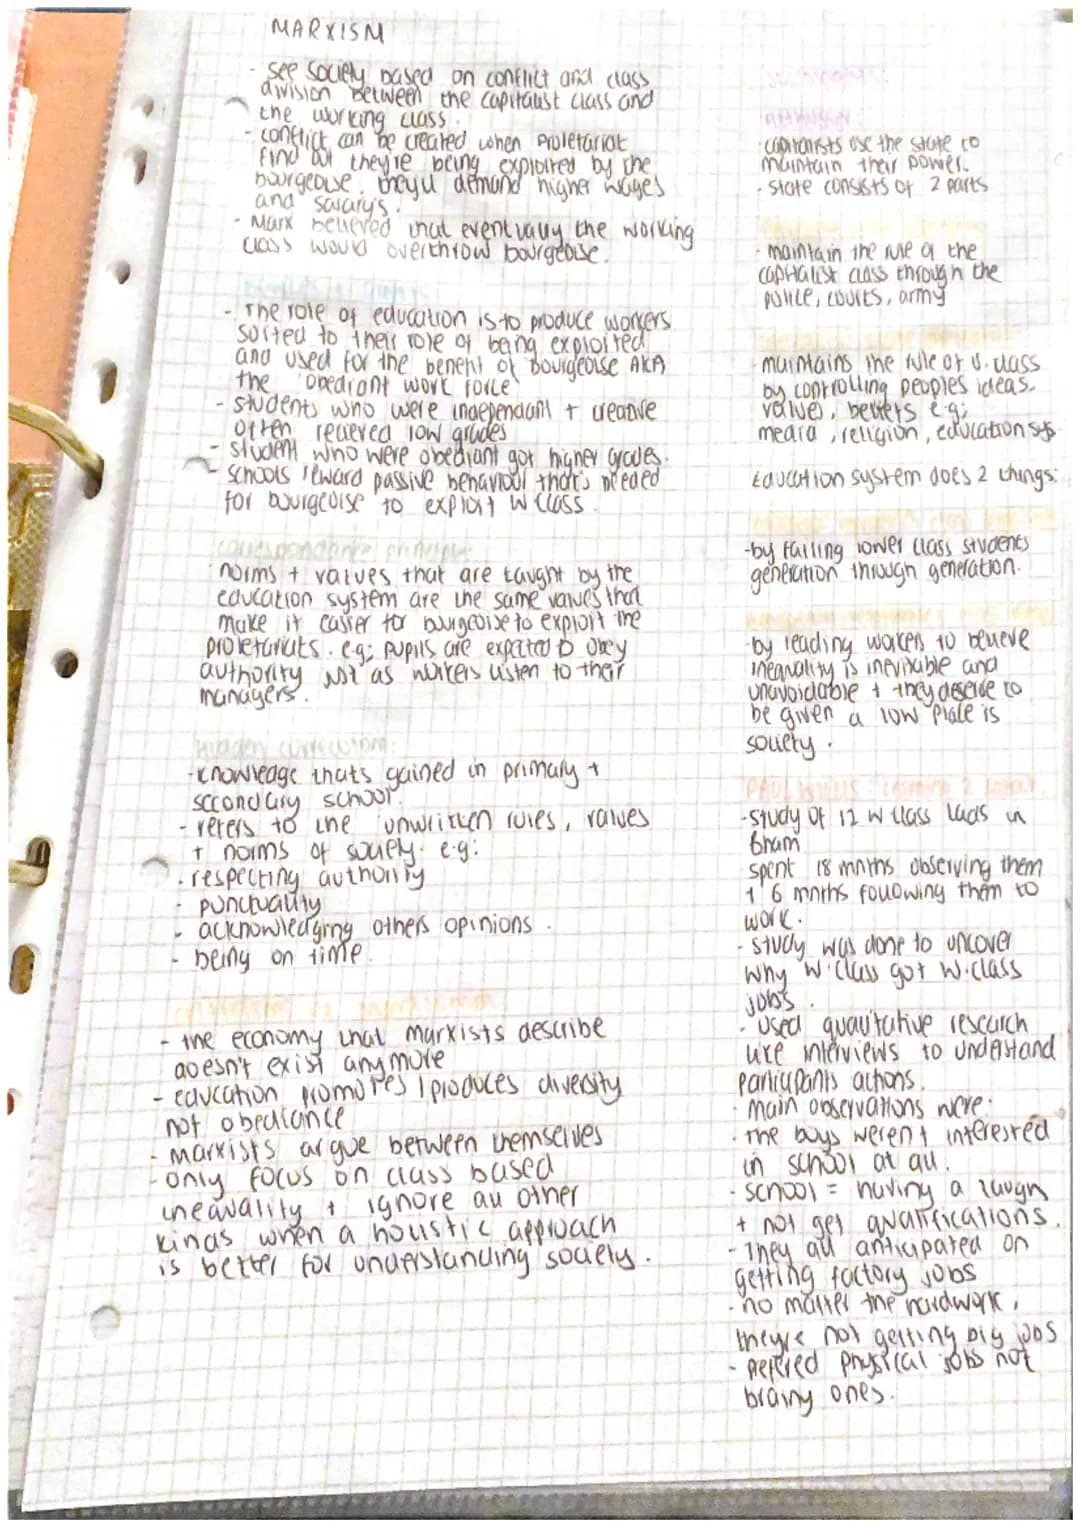 MARXISM
- see society based on conflict and class
division between the capitalist class and
the working class.
- conflict can be created when proletariat
find out they're being exploited by the
bourgeoise, they'll demand higher wages
and salary's.
- Marx believed that eventually the working
class would overthrow bourgeoise.
- The role of education is to produce workers
suited to their role of being exploited
and used for the benefit of bourgeoise AKA
the 'obediant work force'
- students who were independant + creative
often recieved low grades
- student who were obediant got higher grades.
- schools reward passive behaviour that's needed
for bourgeoise to exploit w class.
correspondance principle:
norms + values that are taught by the
education system are the same values that
make it easier for bourgeoise to exploit the
proletariats. e.g; pupils are expected to obey
authority just as workers listen to their
managers.
Hidden curriculum:
- knowledge thats gained in primary +
secondary school.
- refers to the unwritten rules, values
+ norms of society. e.g:
· respecting authority
- punctuality
- acknowledging others opinions.
- being on time.
- the economy that marxists describe
doesn't exist anymore
- education promotes / produces diversity
not obediance
- marxists argue between themselves
- only focus on class based
inequality + ignore all other
kinds when a houstic approach
is better for understanding society.
· capitalists use the state to
maintain their power.
- state consists of 2 parts
- maintain the rule of the
capitalist class through the
police, courts, army
- maintains the rule of u. class
by controlling peoples ideas,
values, beliefs e.g;
media, religion, education sys
Education system does 2 things:
- by failing lower class students
generation through generation.
- by leading workers to believe
inequality is inevitable and
unavoidable + they deserve to
be given a low place is
society.
PAUL WILLIS: learning 2 labour.
- study of 12 w class lads in
Bham
spent 18 mnths observing them
+ 6 mnths following them to
work.
- study was done to uncover
why w.class got w.class
jobs.
- used qualitative research
like interviews to understand
participants actions.
· main observations were:
- the boys weren't interested
in school at all.
- school = having a laugh
+ not get qualifications.
- They all anticipated on
getting factory jobs
- no matter the hardwork,
they're not getting big jobs
- prefered physical jobs not
brainy ones.